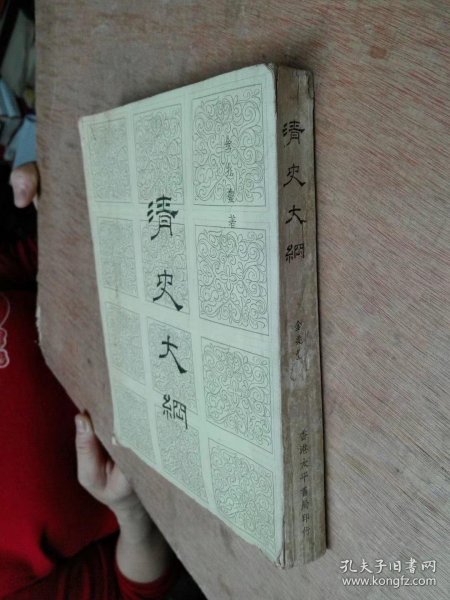 清史大綱
金兆豊著
清史大綱
金兆豊
香港太平書局印行
孔夫子旧书网
www.kongfz.com